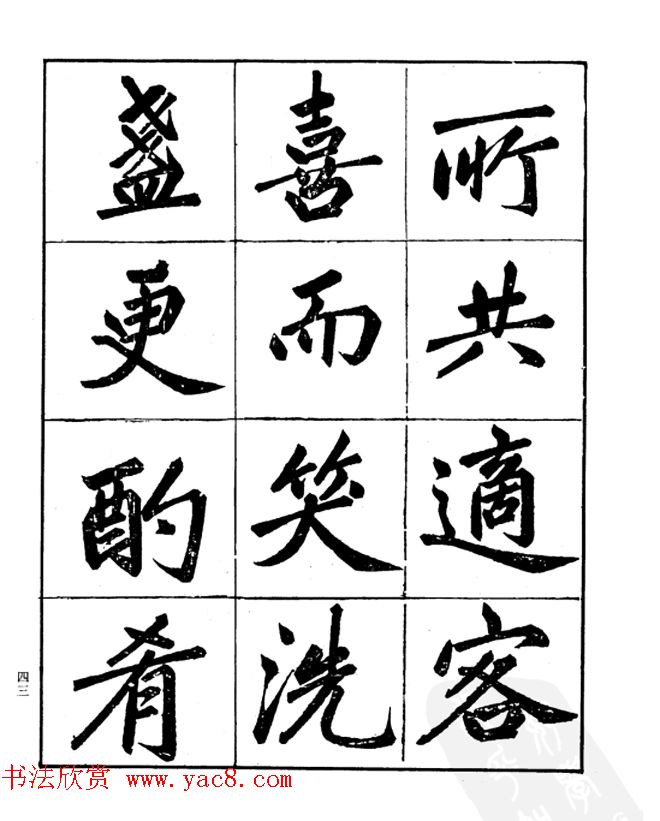 所共適客
喜而笑洗
盏更酌肴
四三
书法欣赏 www.yac8.com